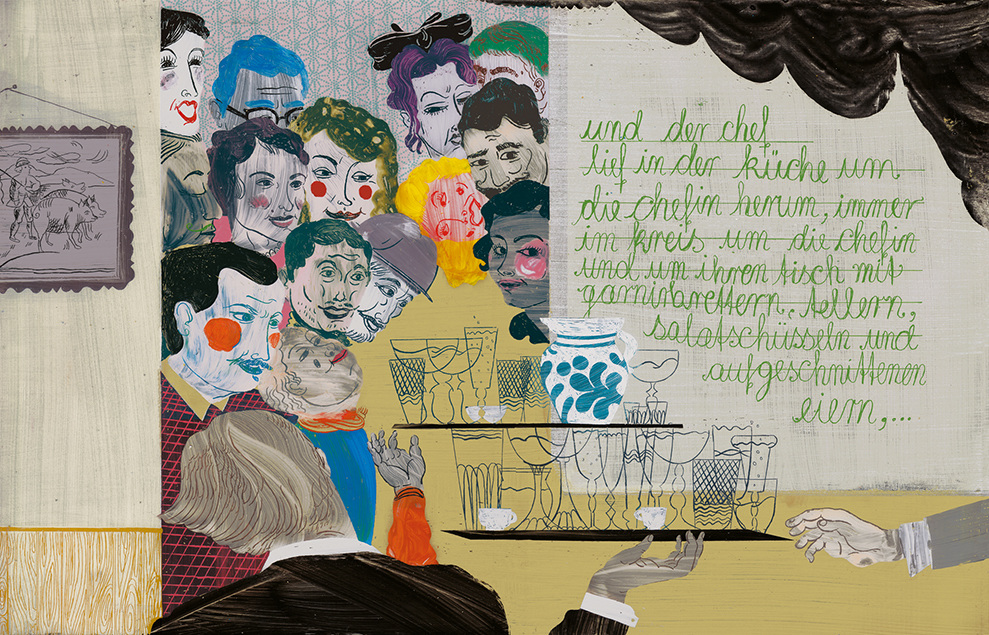 und der chef
lief in der küche um
die chefin herum, immer
im kreis um die chefin
und um ihren tisch mit
garnirbrettern, tellern,
salatschüsseln und
aufgeschnittenen
eiern,...